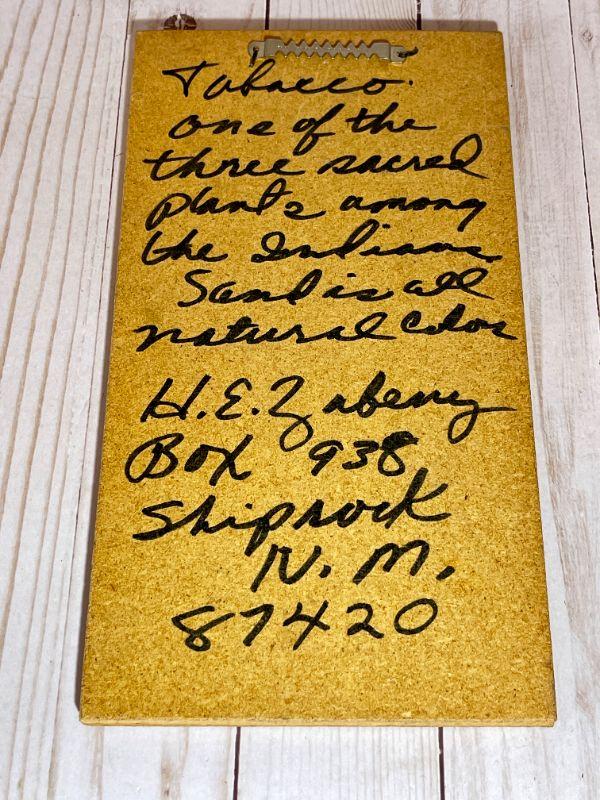 Tobacco.
one of the
three sacred
plants among
the Indians
Sand is all
natural Color
H.E. Zabeny
Box 938
Shiprock
N.M.
87420